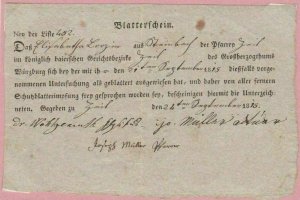 Blatterschein.
Nro der Liste 452.
Daß Elisabetha aus Steinbach der Pfarrey Zeil
im königlich baierschen Gerichtsbezirke Zeil des Großherzogthums
Würzburg sich bey der mir th - den September 1815 dießfalls vorge-
nommenen Untersuchung als geblattert ausgewiesen hat, und daher von aller fernern
Schutzblatternimpfung frey gesprochen worden sey, bescheinigen hiermit die Unterzeich-
neten. Gegeben zu Zeil den 24ten September 1815.
Müller
Joseph Müller Pfarrer